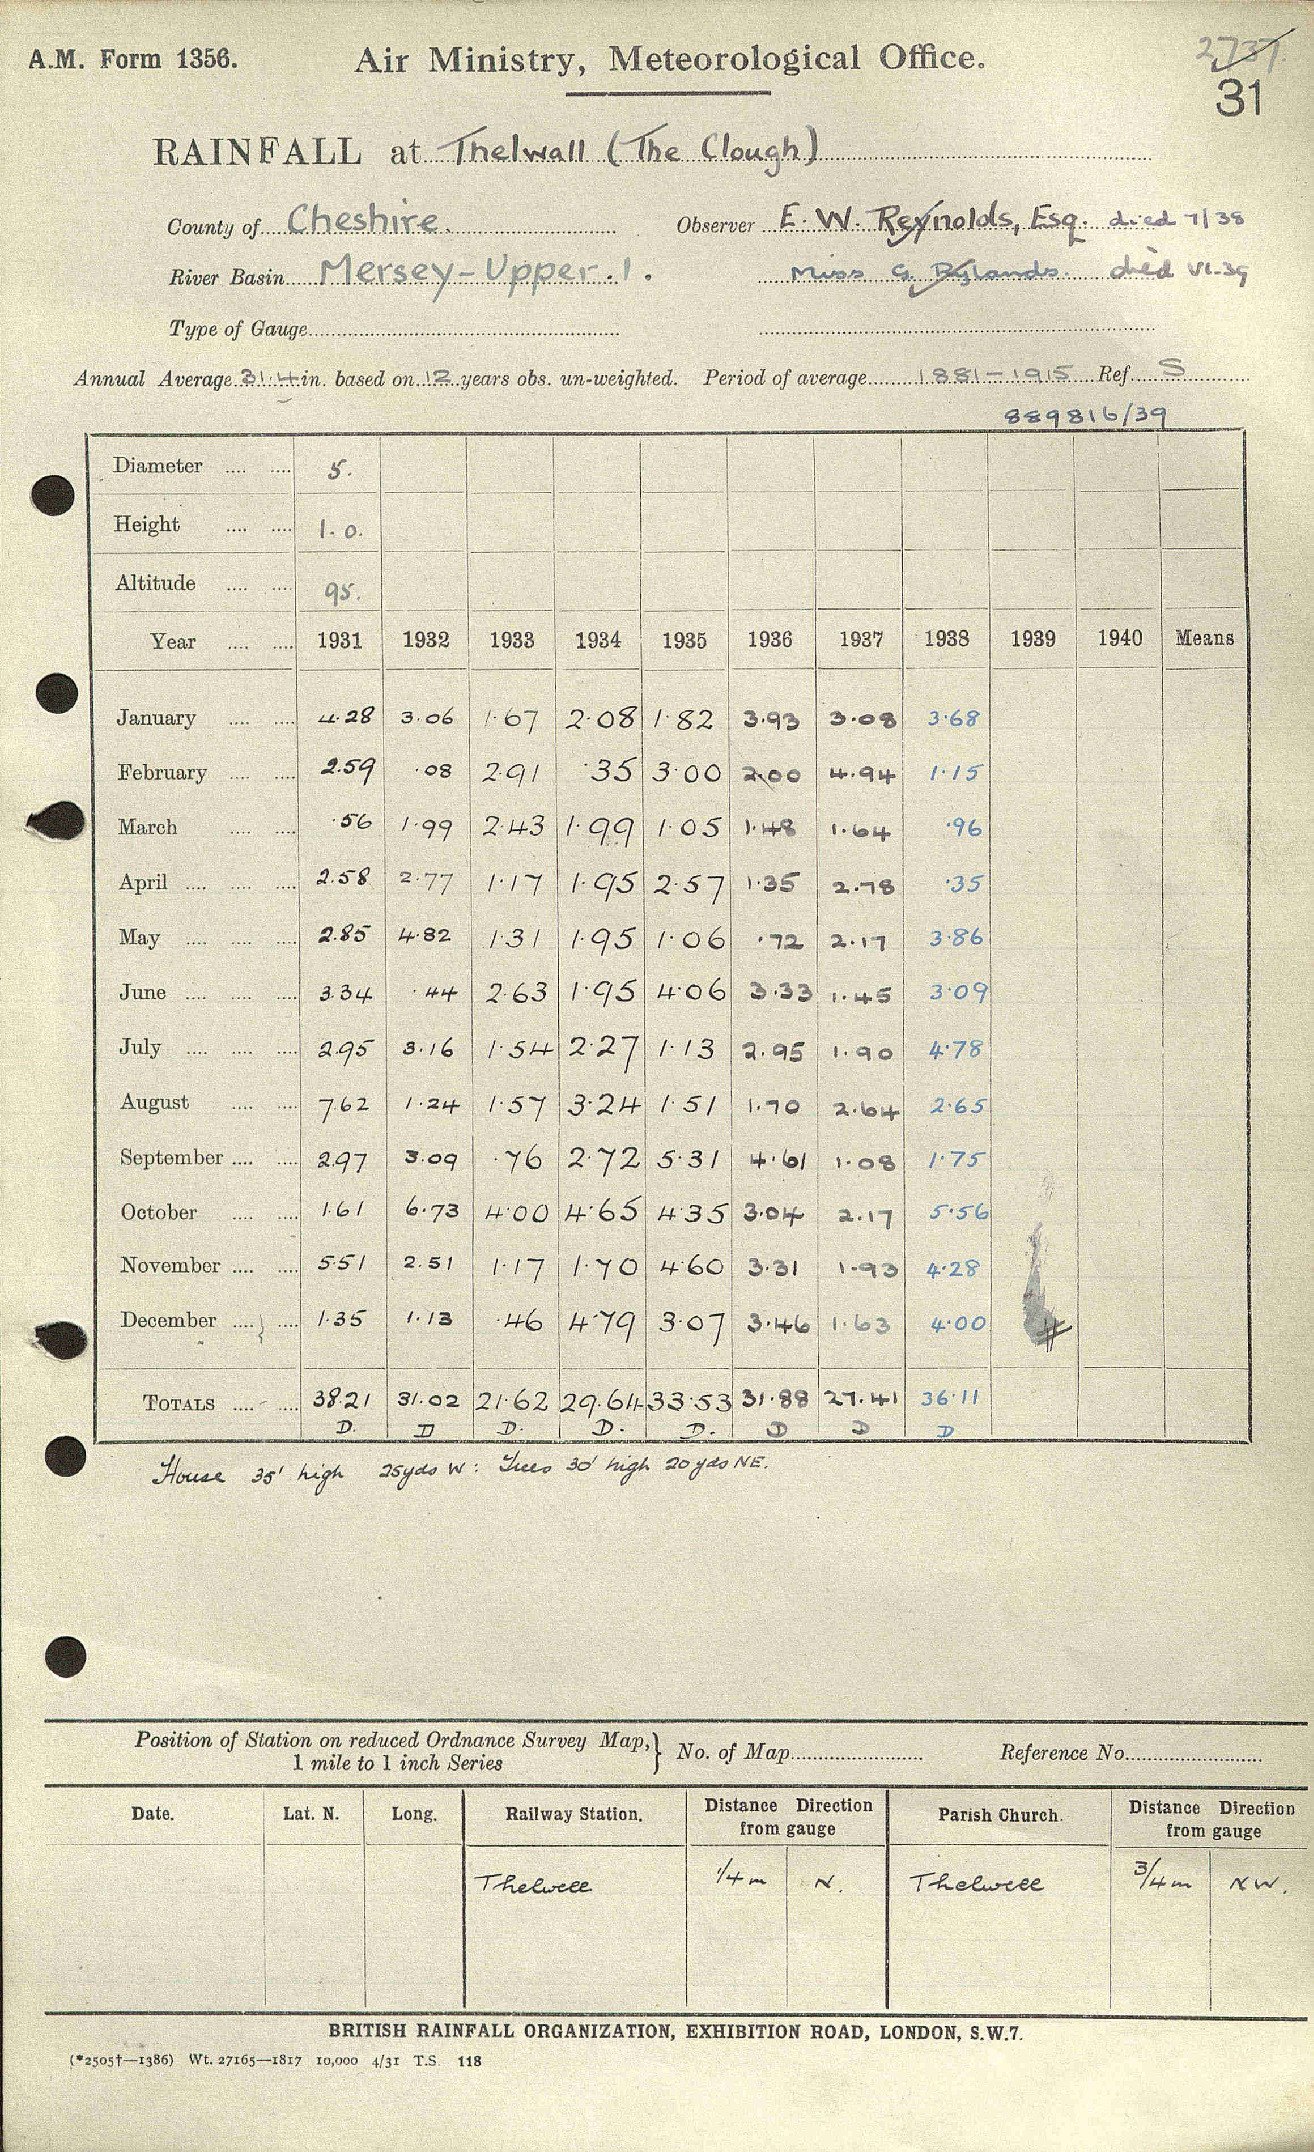 A.M. Form 1356.
Air Ministry, Meteorological Office.
2737.
31
RAINFALL at Thelwall (The Clough)
County of Cheshire. Observer E. W. Reynolds, Esq. died 7/38
River Basin Mersey-Upper. 1. Miss G. Rylands. died VI.39
Type of Gauge
Annual Average 31.4 in. based on 12 years obs. un-weighted. Period of average 1881-1915 Ref. S
889816/39
Diameter .... .... 5.
Height .... .... 1.0.
Altitude .... .... 95.
Year .... .... 1931 1932 1933 1934 1935 1936 1937 1938 1939 1940 Means
January .... .... 4.28 3.06 1.67 2.08 1.82 3.93 3.08 3.68
February .... .... 2.59 .08 2.91 .35 3.00 2.00 4.94 1.15
March .... .... .56 1.99 2.43 1.99 1.05 1.48 1.64 .96
April .... .... .... 2.58 2.77 1.17 1.95 2.57 1.35 2.78 .35
May .... .... .... 2.85 4.82 1.31 1.95 1.06 .72 2.17 3.86
June .... .... .... 3.34 .44 2.63 1.95 4.06 3.33 1.45 3.09
July .... .... .... 2.95 3.16 1.54 2.27 1.13 2.95 1.90 4.78
August .... .... 7.62 1.24 1.57 3.24 1.51 1.70 2.64 2.65
September .... .... 2.97 3.09 .76 2.72 5.31 4.61 1.08 1.75
October .... .... 1.61 6.73 4.00 4.65 4.35 3.04 2.17 5.56
November .... .... 5.51 2.51 1.17 1.70 4.60 3.31 1.93 4.28
December .... .... 1.35 1.13 .46 4.79 3.07 3.46 1.63 4.00
TOTALS .... .... 38.21 31.02 21.62 29.64 33.53 31.88 27.41 36.11
D. D D. D. D. D D D
House 35' high 25yds W: Trees 30' high 20yds NE.
Position of Station on reduced Ordnance Survey Map,
1 mile to 1 inch Series
No. of Map Reference No.
Date. Lat. N. Long. Railway Station. Distance Direction from gauge Parish Church. Distance Direction from gauge
Thelwell 1/4 m N. Thelwell 3/4 m NW.
BRITISH RAINFALL ORGANIZATION, EXHIBITION ROAD, LONDON, S.W.7.
(*2505†—1386) Wt. 27165—1817 10,000 4/31 T.S. 118